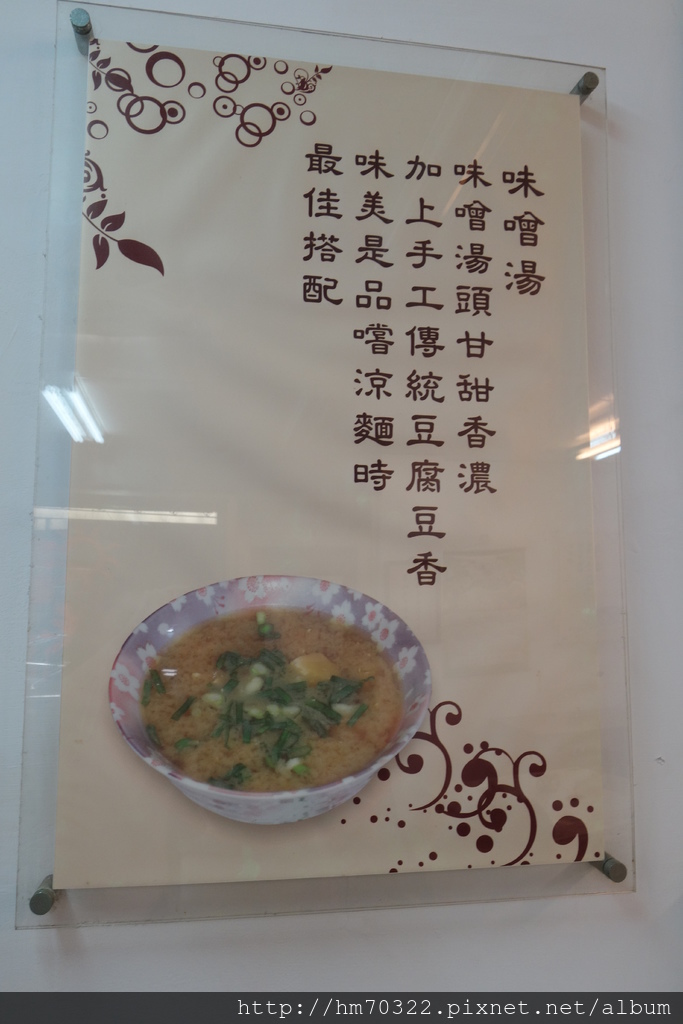 味噌湯
味噌湯頭甘甜香濃
加上手工傳統豆腐豆香
味美是品嚐涼麵時
最佳搭配
http://hm70322.pixnet.net/album